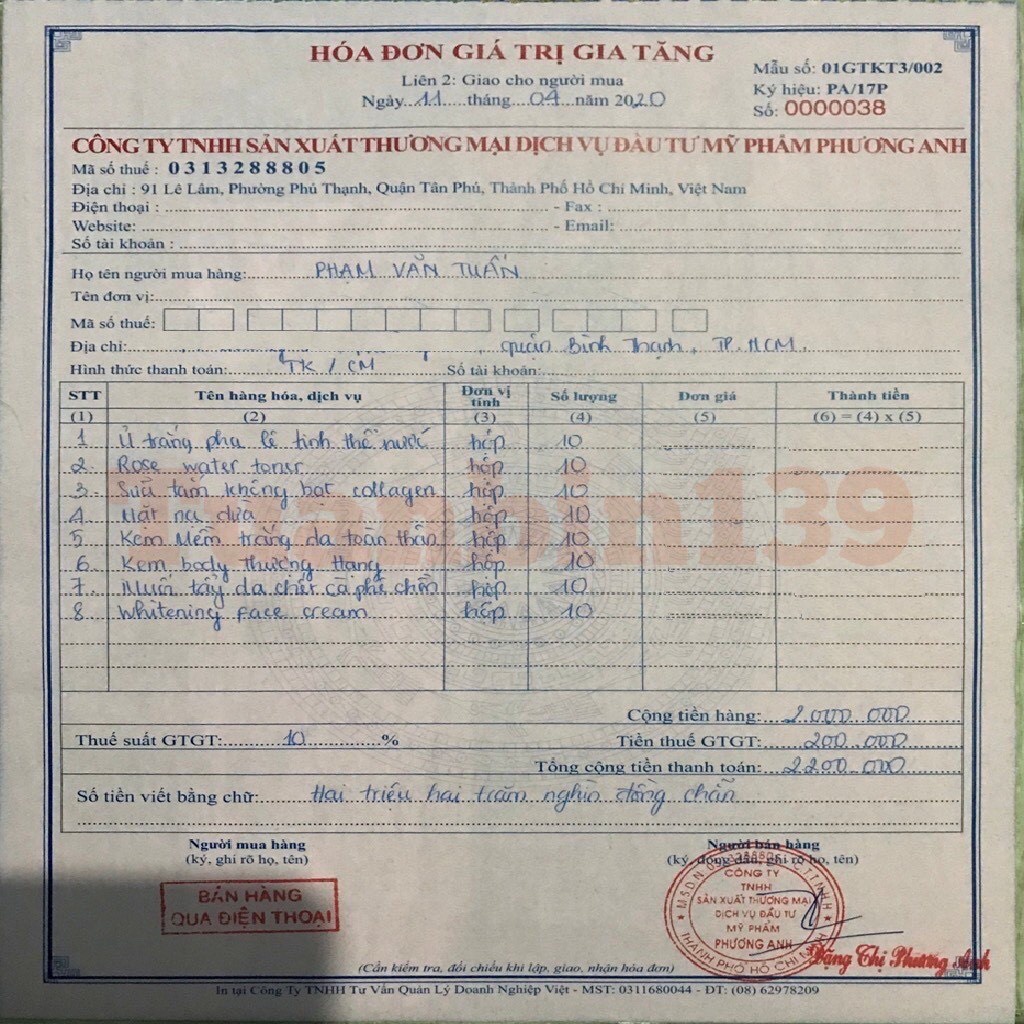 HÓA ĐƠN GIÁ TRỊ GIA TĂNG
Liên 2: Giao cho người mua
Ngày 11 tháng 04 năm 2020
Mẫu số: 01GTKT3/002
Ký hiệu: PA/17P
Số: 0000038
CÔNG TY TNHH SẢN XUẤT THƯƠNG MẠI DỊCH VỤ ĐẦU TƯ MỸ PHẨM PHƯƠNG ANH
Mã số thuế : 0313288805
Địa chỉ : 91 Lê Lâm, Phường Phú Thạnh, Quận Tân Phú, Thành Phố Hồ Chí Minh, Việt Nam
Điện thoại : - Fax :
Website: - Email:
Số tài khoản :
Họ tên người mua hàng: PHẠM VĂN TUẤN
Tên đơn vị:
Mã số thuế:
Địa chỉ: quận Bình Thạnh, TP. HCM.
Hình thức thanh toán: TK / CM Số tài khoản:
STT Tên hàng hóa, dịch vụ Đơn vị tính Số lượng Đơn giá Thành tiền
(1) (2) (3) (4) (5) (6) = (4) x (5)
1 Ủ trắng pha lê tinh thể nước hộp 10
2 Rose water toner hộp 10
3 Sữa tắm không bọt collagen hộp 10
4 Mặt nạ dừa hộp 10
5 Kem Mềm trắng da toàn thân hộp 10
6 Kem body thượng Hạng hộp 10
7 Muối tẩy da chết cà phê hộp 10
8 Whitening Face cream hộp 10
Tuanbin139
Cộng tiền hàng: 2.000.000
Thuế suất GTGT: 10 % Tiền thuế GTGT: 200.000
Tổng cộng tiền thanh toán: 2.200.000
Số tiền viết bằng chữ: Hai triệu hai trăm nghìn đồng chẵn
Người mua hàng
(ký, ghi rõ họ, tên)
BÁN HÀNG
QUA ĐIỆN THOẠI
Người bán hàng
(ký, đóng dấu, ghi rõ họ, tên)
CÔNG TY
TNHH
SẢN XUẤT THƯƠNG MẠI
DỊCH VỤ ĐẦU TƯ
MỸ PHẨM
PHƯƠNG ANH
THÀNH PHỐ HỒ CHÍ MINH
Đặng Thị Phương Anh
(Cần kiểm tra, đối chiếu khi lập, giao, nhận hóa đơn)
In tại Công Ty TNHH Tư Vấn Quản Lý Doanh Nghiệp Việt - MST: 0311680044 - ĐT: (08) 62978209